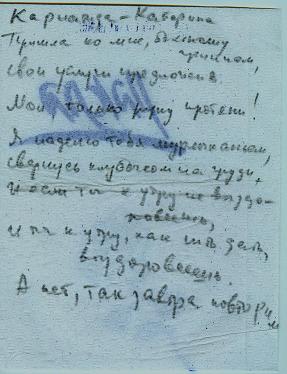 Карнавца - Каварина
Пришла ко мне, больному
причиом,
свои услуги предложена.
Мол, только руку протяни!
Я наделю тебя мурлыканьем,
свернусь клубочком на груди,
и если ты к утру не выздо-
ровеешь,
И ты к утру, как
выздоровеешь.
А нет, так завтра повторим